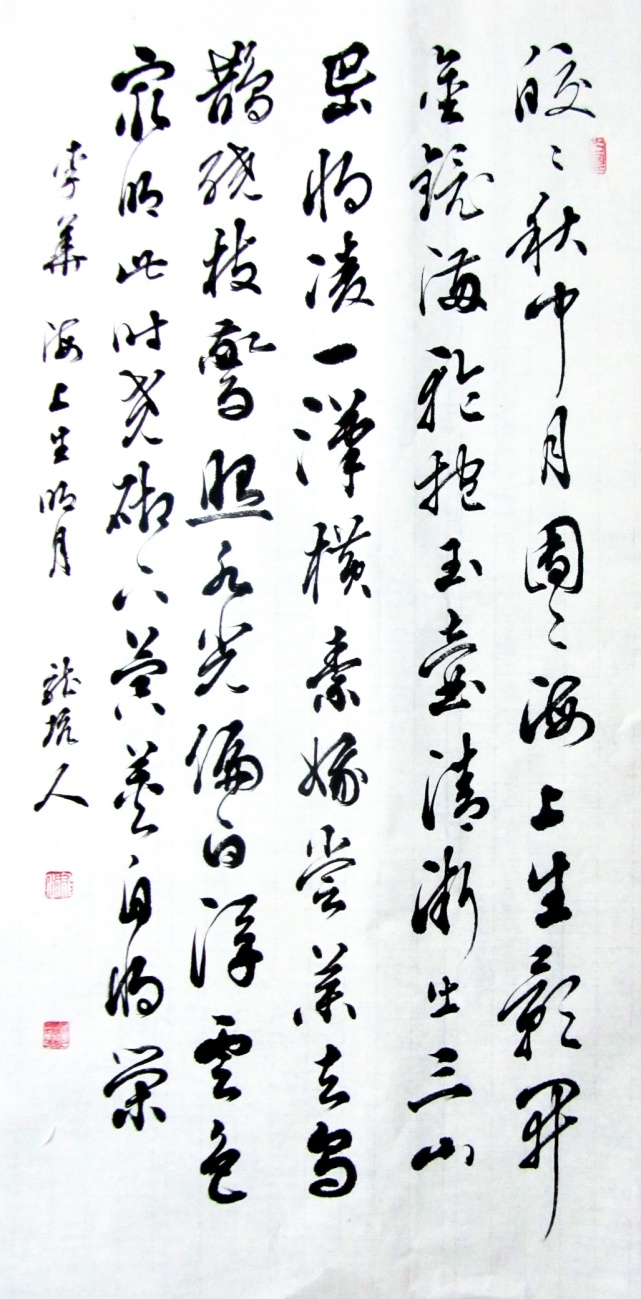 皎〻秋中月團〻海上生影開
金鏡滿輪抱玉壺清漸出三山
岊將凌一漢橫素娥嘗藥去烏
鵲繞枝驚照水光偏白浮雲色
最明此時堯砌下蓂莢自將榮
李華 海上生明月 龍坑人